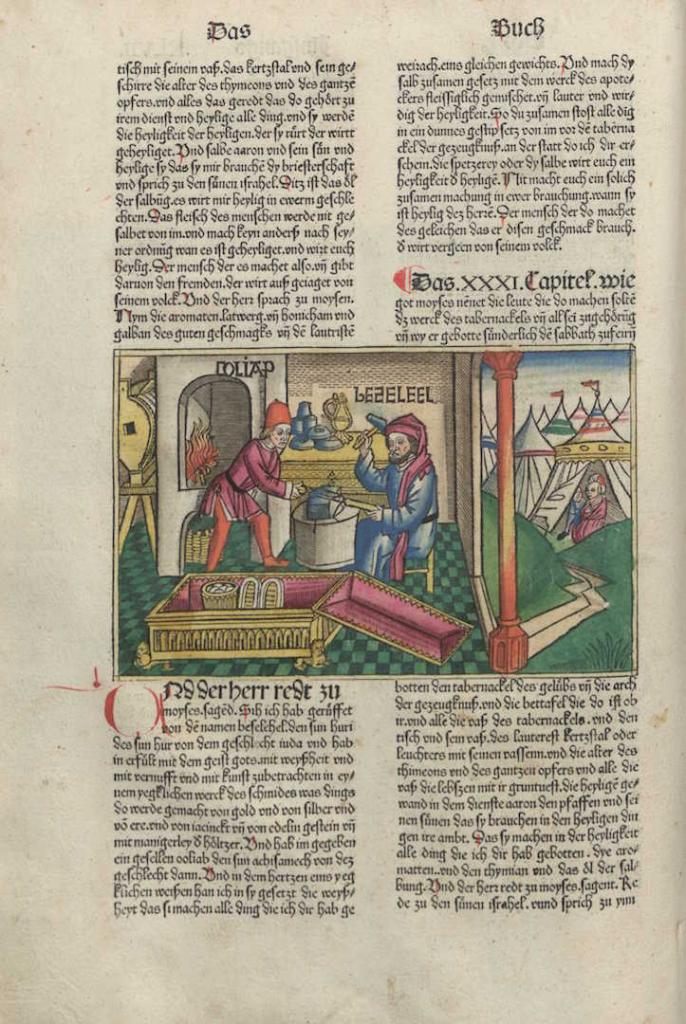 Das
Buch
tisch mit seinem vaß.das kertzstal vnd sein ge-
schirre die alter des thymeons vnd des gantzē
opfers.vnd alles das geredt das do gehört zu
irem dienst vnd heylige alle ding.vnd sy werdē
die heyligkeit der heyligen.der sy rürt der wirtt
geheyliget.Vnd salbe aaron vnd sein sün vnd
heylige sy das sy mir brauchē dy briesterschaft
vnd sprich zu den sünen israhel.Ditz ist das öl
der salbūg.es wirt mir heylig in ewerm geschle
chten.Das fleisch des menschen werde nit ge-
salbet von im.vnd mach keyn anders nach sey-
ner ordnūg wan es ist geheyliget.vnd wirt euch
heylig.Der mensch der es machet also.vñ gibt
daruon den fremden.der wirt auß geiaget von
seinem volck.Vnd der herr sprach zu moysen.
Nym die aromaten.latwerg.vñ honicham vnd
galban des guten geschmagks vñ dē lautristē
weirach.eins gleichen gewichts.Vnd mach dy
salb zusamen gesetz mit dem werck des apote-
ckers fleissiglich gemischet.vñ lauter vnd wir-
dig der heyligkeit.So du zusamen stost alle dīg
in ein dunnes gestüp setz von im vor dē taberna
ckel der gezeugknuß.an der statt do ich dir er-
schein.die spetzerey oder dy salbe wirt euch ein
heyligkeit d heyligē.Nit macht euch ein solich
zusamen machung in ewer brauchung.wann sy
ist heylig dez herrē.Der mensch der do machet
des geleichen das er disen geschmack brauch.
d wirt vergeen von seinem volck.
Das.XXXI.Capitel.wie
got moyses nēnet die leute die do machen soltē
dz werck des tabernackels vñ all sei zugehörūg
vñ wy er gebotte sünderlich dē sabbath zufeirñ
OOLIAP
BEZELEEL
VNd der herr redt zu
moyses.sagēd.Sih ich hab gerüffet
von dē namen beselehel.den sun huri
des sun hur von dem geschlecht iuda vnd hab
in erfült mit dem geist gots.mit weyßheit vnd
mit vernufft vnd mit kunst zubetrachten in ey-
nem yegklichen werck des schmides was dings
do werde gemacht von gold vnd von silber vnd
vō ere.vnd von iacinckt vñ von edelin gestein vñ
mit manigerley d höltzer.Vnd hab im gegeben
ein gesellen ooliab den sun achisamech von dez
geschlecht dann.Vnd in dem hertzen eins yeg
klichen weißen han ich in sy gesetzt die weyß-
heyt das si machen alle ding die ich dir hab ge
botten den tabernackel des gelübs vñ die arch
der gezeugknuß.vnd die bettafel die do ist ob
ir.vnd alle die vaß des tabernackels.vnd den
tisch vnd sein vaß.des lauterest kertzstal oder
leuchters mit seinen vassenn.vnd die alter des
thimeons vnd des gantzen opfers vnd alle die
vaß die lebszen mit ir gruntuest.die heylige ge-
wand in dem dienste aaron den pfaffen vnd sei
nen sünen das sy brauchen in den heyligen din
gen ire ambt.Das sy machen in der heyligkeit
alle ding die ich dir hab gebotten.dye aro-
matten..vnd den thymian vnd das öl der sal-
bung.Vnd der herr redt zu moyses.sagent.Re
de zu den sünen israhel.vnnd sprich zu ynn